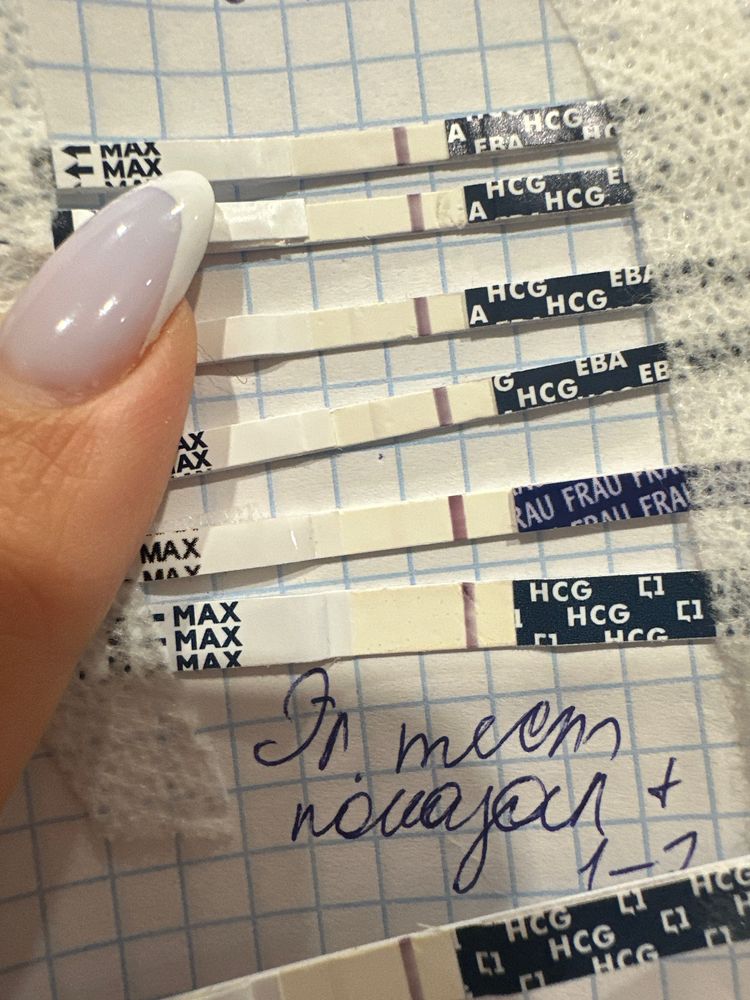 MAX
MAX
HCG
A EBA
HCG
A HCG
HCG EBA
A HCG
EBA
HCG EB
MAX
FRAU FRAU
FRAU FRAU
MAX
MAX
HCG
HCG
HCG
MAX
MAX
MAX
Эл. тест
показал +
1-2
HCG
HCG HCG
HCG